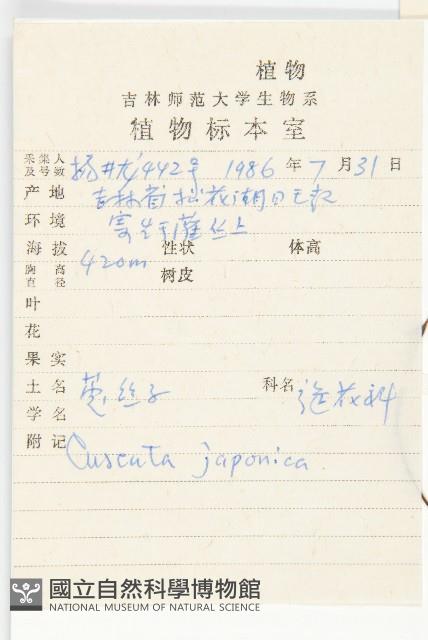 植物
吉林师范大学生物系
植物标本室
采集人及号数 442号 1986年7月31日
产地 吉林省松花湖
环境 寄生于 上
海拔 420m 性状 体高
胸高直径 树皮
叶
花
果实
土名 菟丝子 科名 旋花科
学名
附记 Cuscuta japonica
國立自然科學博物館
NATIONAL MUSEUM OF NATURAL SCIENCE